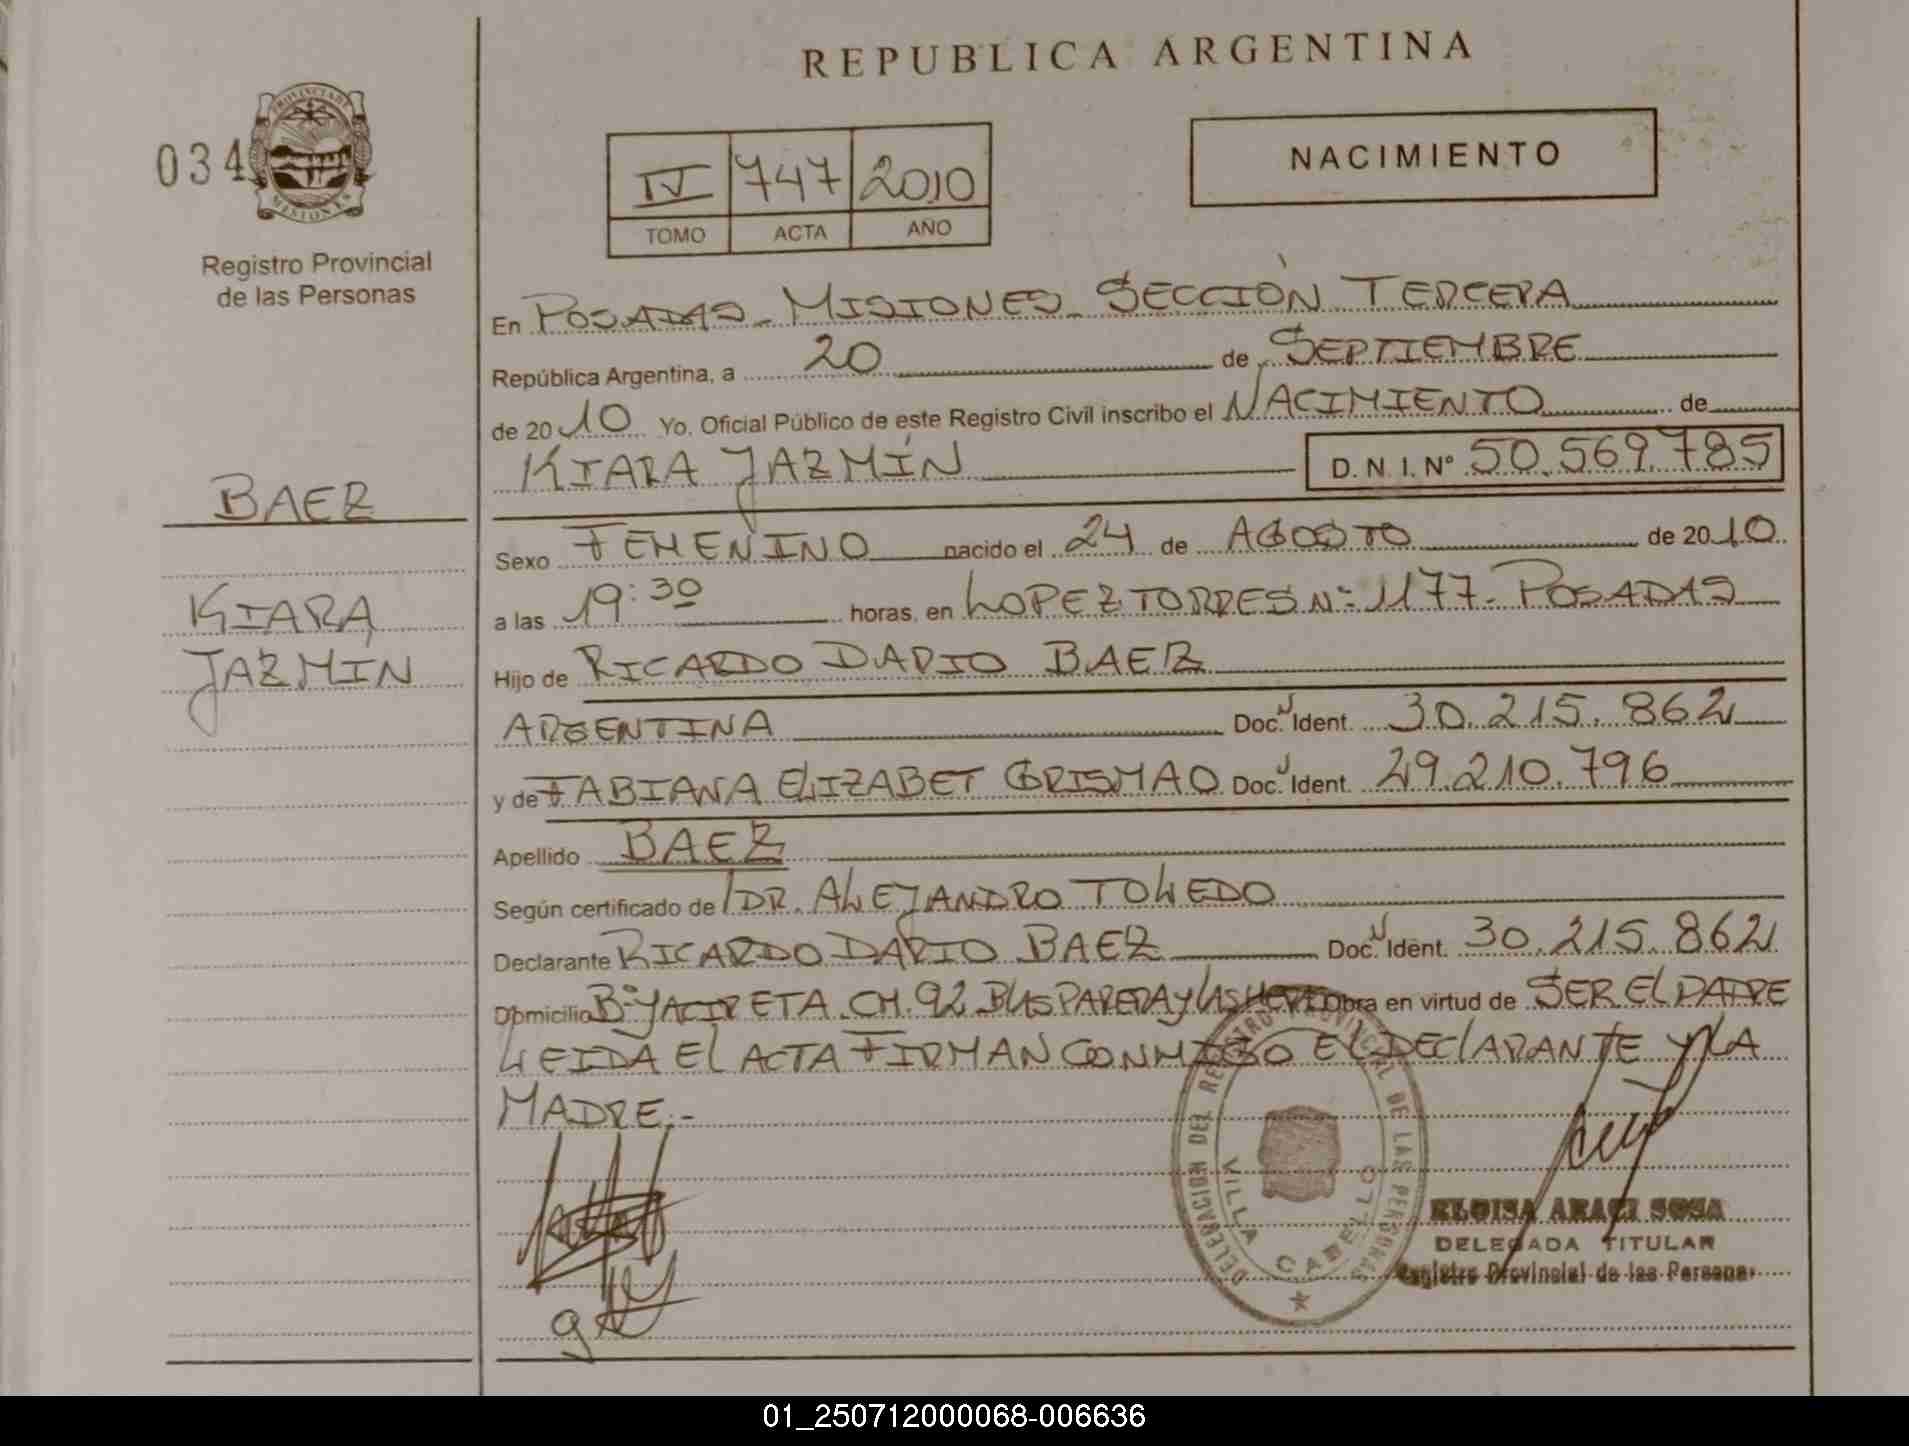 REPUBLICA ARGENTINA
034
PROVINCIA DE
MISIONES
Registro Provincial
de las Personas
IV 747 2010
TOMO ACTA AÑO
NACIMIENTO
En POSADAS - MISIONES - SECCIÓN TERCERA
República Argentina, a 20 de SEPTIEMBRE
de 2010 Yo. Oficial Público de este Registro Civil inscribo el NACIMIENTO de
KIARA JAZMÍN D. N. I. Nº 50.569.785
BAEZ
KIARA
JAZMIN
Sexo FEMENINO nacido el 24 de AGOSTO de 2010
a las 19:30 horas, en LOPEZ TORRES Nº 1177 - POSADAS
Hijo de RICARDO DARIO BAEZ
ARGENTINA Doc. Ident. 30.215.862
y de FABIANA ELIZABET GRISMAO Doc. Ident. 29.210.796
Apellido BAEZ
Según certificado de DR. ALEJANDRO TOLEDO
Declarante RICARDO DARIO BAEZ Doc. Ident. 30.215.862
Domicilio Bº YACIRETA CH. 92 BLAS PAREDA Y LAS Obra en virtud de SER EL PADRE
LEIDA EL ACTA FIRMAN CONMIGO EL DECLARANTE Y LA
MADRE.-
DELEGACION DEL REGISTRO PROVINCIAL DE LAS PERSONAS
VILLA CABELLO
ELOISA ARACI SOSA
DELEGADA TITULAR
Registro Provincial de las Personas
01_250712000068-006636